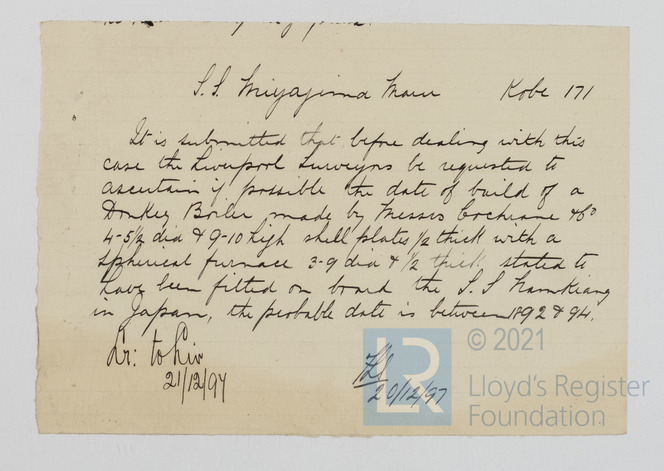 S.S. Miyajima Maru Kobe 171
It is submitted that before dealing with this
case the Liverpool Surveyors be requested to
ascertain if possible the date of build of a
Donkey Boiler made by Messrs Cochrane & Co
4-5½ dia & 9-10 high shell plates ½ thick with a
spherical furnace 3-9 dia & ½ thick stated to
have been fitted on board the S.S Namkiang
in Japan, the probable date is between 1892 & 94.
Lr: to Liv
21/12/97
20/12/97
LR
© 2021
Lloyd's Register
Foundation